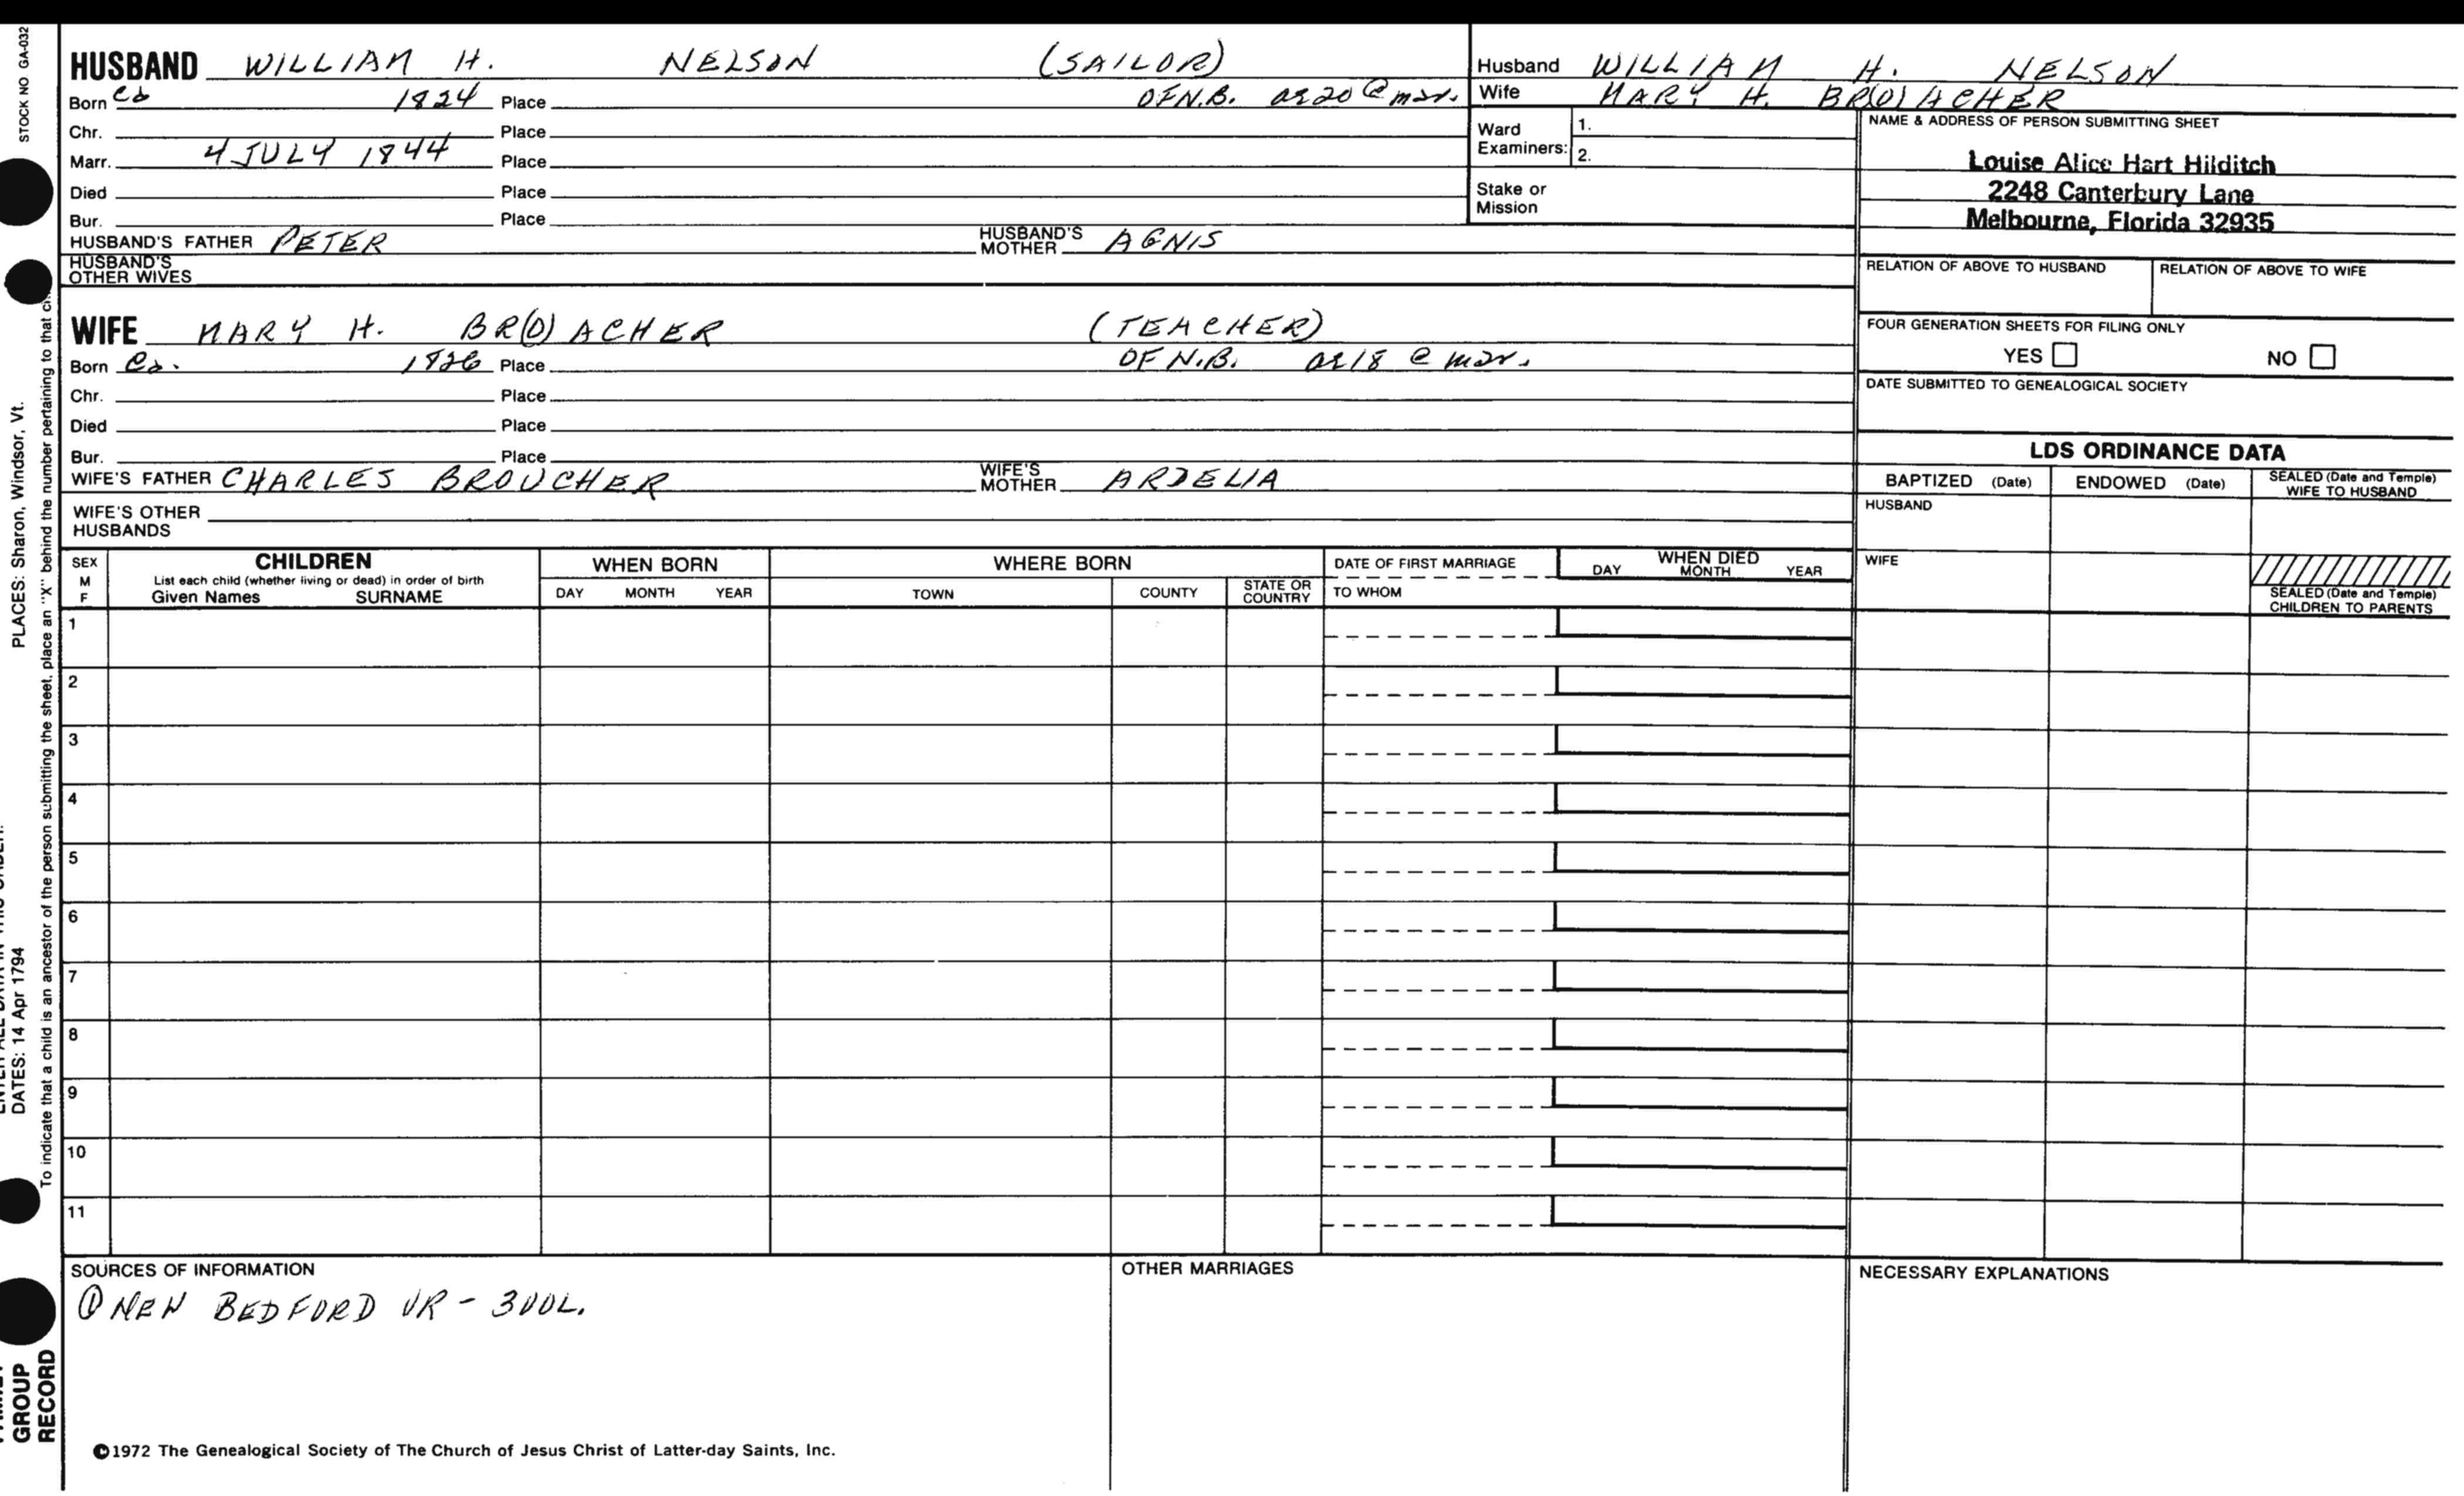 STOCK NO GA-032
HUSBAND WILLIAM H. NELSON (SAILOR)
Born ca 1824 Place OF N.B. ae 20 @ mar.
Chr. Place
Marr. 4 JULY 1844 Place
Died Place
Bur. Place
HUSBAND'S FATHER PETER HUSBAND'S MOTHER AGNIS
HUSBAND'S OTHER WIVES
Husband WILLIAM H. NELSON
Wife MARY H. BR(O)ACHER
Ward Examiners: 1.
2.
Stake or Mission
NAME & ADDRESS OF PERSON SUBMITTING SHEET
Louise Alice Hart Hilditch
2248 Canterbury Lane
Melbourne, Florida 32935
RELATION OF ABOVE TO HUSBAND RELATION OF ABOVE TO WIFE
FOUR GENERATION SHEETS FOR FILING ONLY
YES NO
DATE SUBMITTED TO GENEALOGICAL SOCIETY
WIFE MARY H. BR(O)ACHER (TEACHER)
Born Ca. 1826 Place OF N.B. ae 18 @ mar.
Chr. Place
Died Place
Bur. Place
WIFE'S FATHER CHARLES BROUCHER WIFE'S MOTHER ARDELIA
WIFE'S OTHER HUSBANDS
LDS ORDINANCE DATA
BAPTIZED (Date) ENDOWED (Date) SEALED (Date and Temple) WIFE TO HUSBAND
HUSBAND
WIFE
SEALED (Date and Temple) CHILDREN TO PARENTS
SEX M F CHILDREN List each child (whether living or dead) in order of birth Given Names SURNAME
WHEN BORN DAY MONTH YEAR
WHERE BORN TOWN COUNTY STATE OR COUNTRY
DATE OF FIRST MARRIAGE TO WHOM
WHEN DIED DAY MONTH YEAR
1
2
3
4
5
6
7
8
9
10
11
SOURCES OF INFORMATION
① NEW BEDFORD VR - 3VOL.
OTHER MARRIAGES
NECESSARY EXPLANATIONS
©1972 The Genealogical Society of The Church of Jesus Christ of Latter-day Saints, Inc.
GROUP
RECORD
DATES: 14 Apr 1794
PLACES: Sharon, Windsor, Vt.
To indicate that a child is an ancestor of the person submitting the sheet, place an "X" behind the number pertaining to that